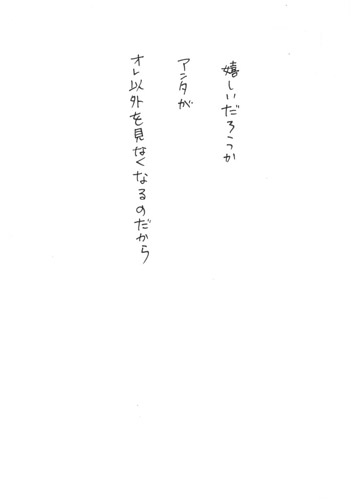 嬉しいだろうか
アンタが
オレ以外を見なくなるのだから